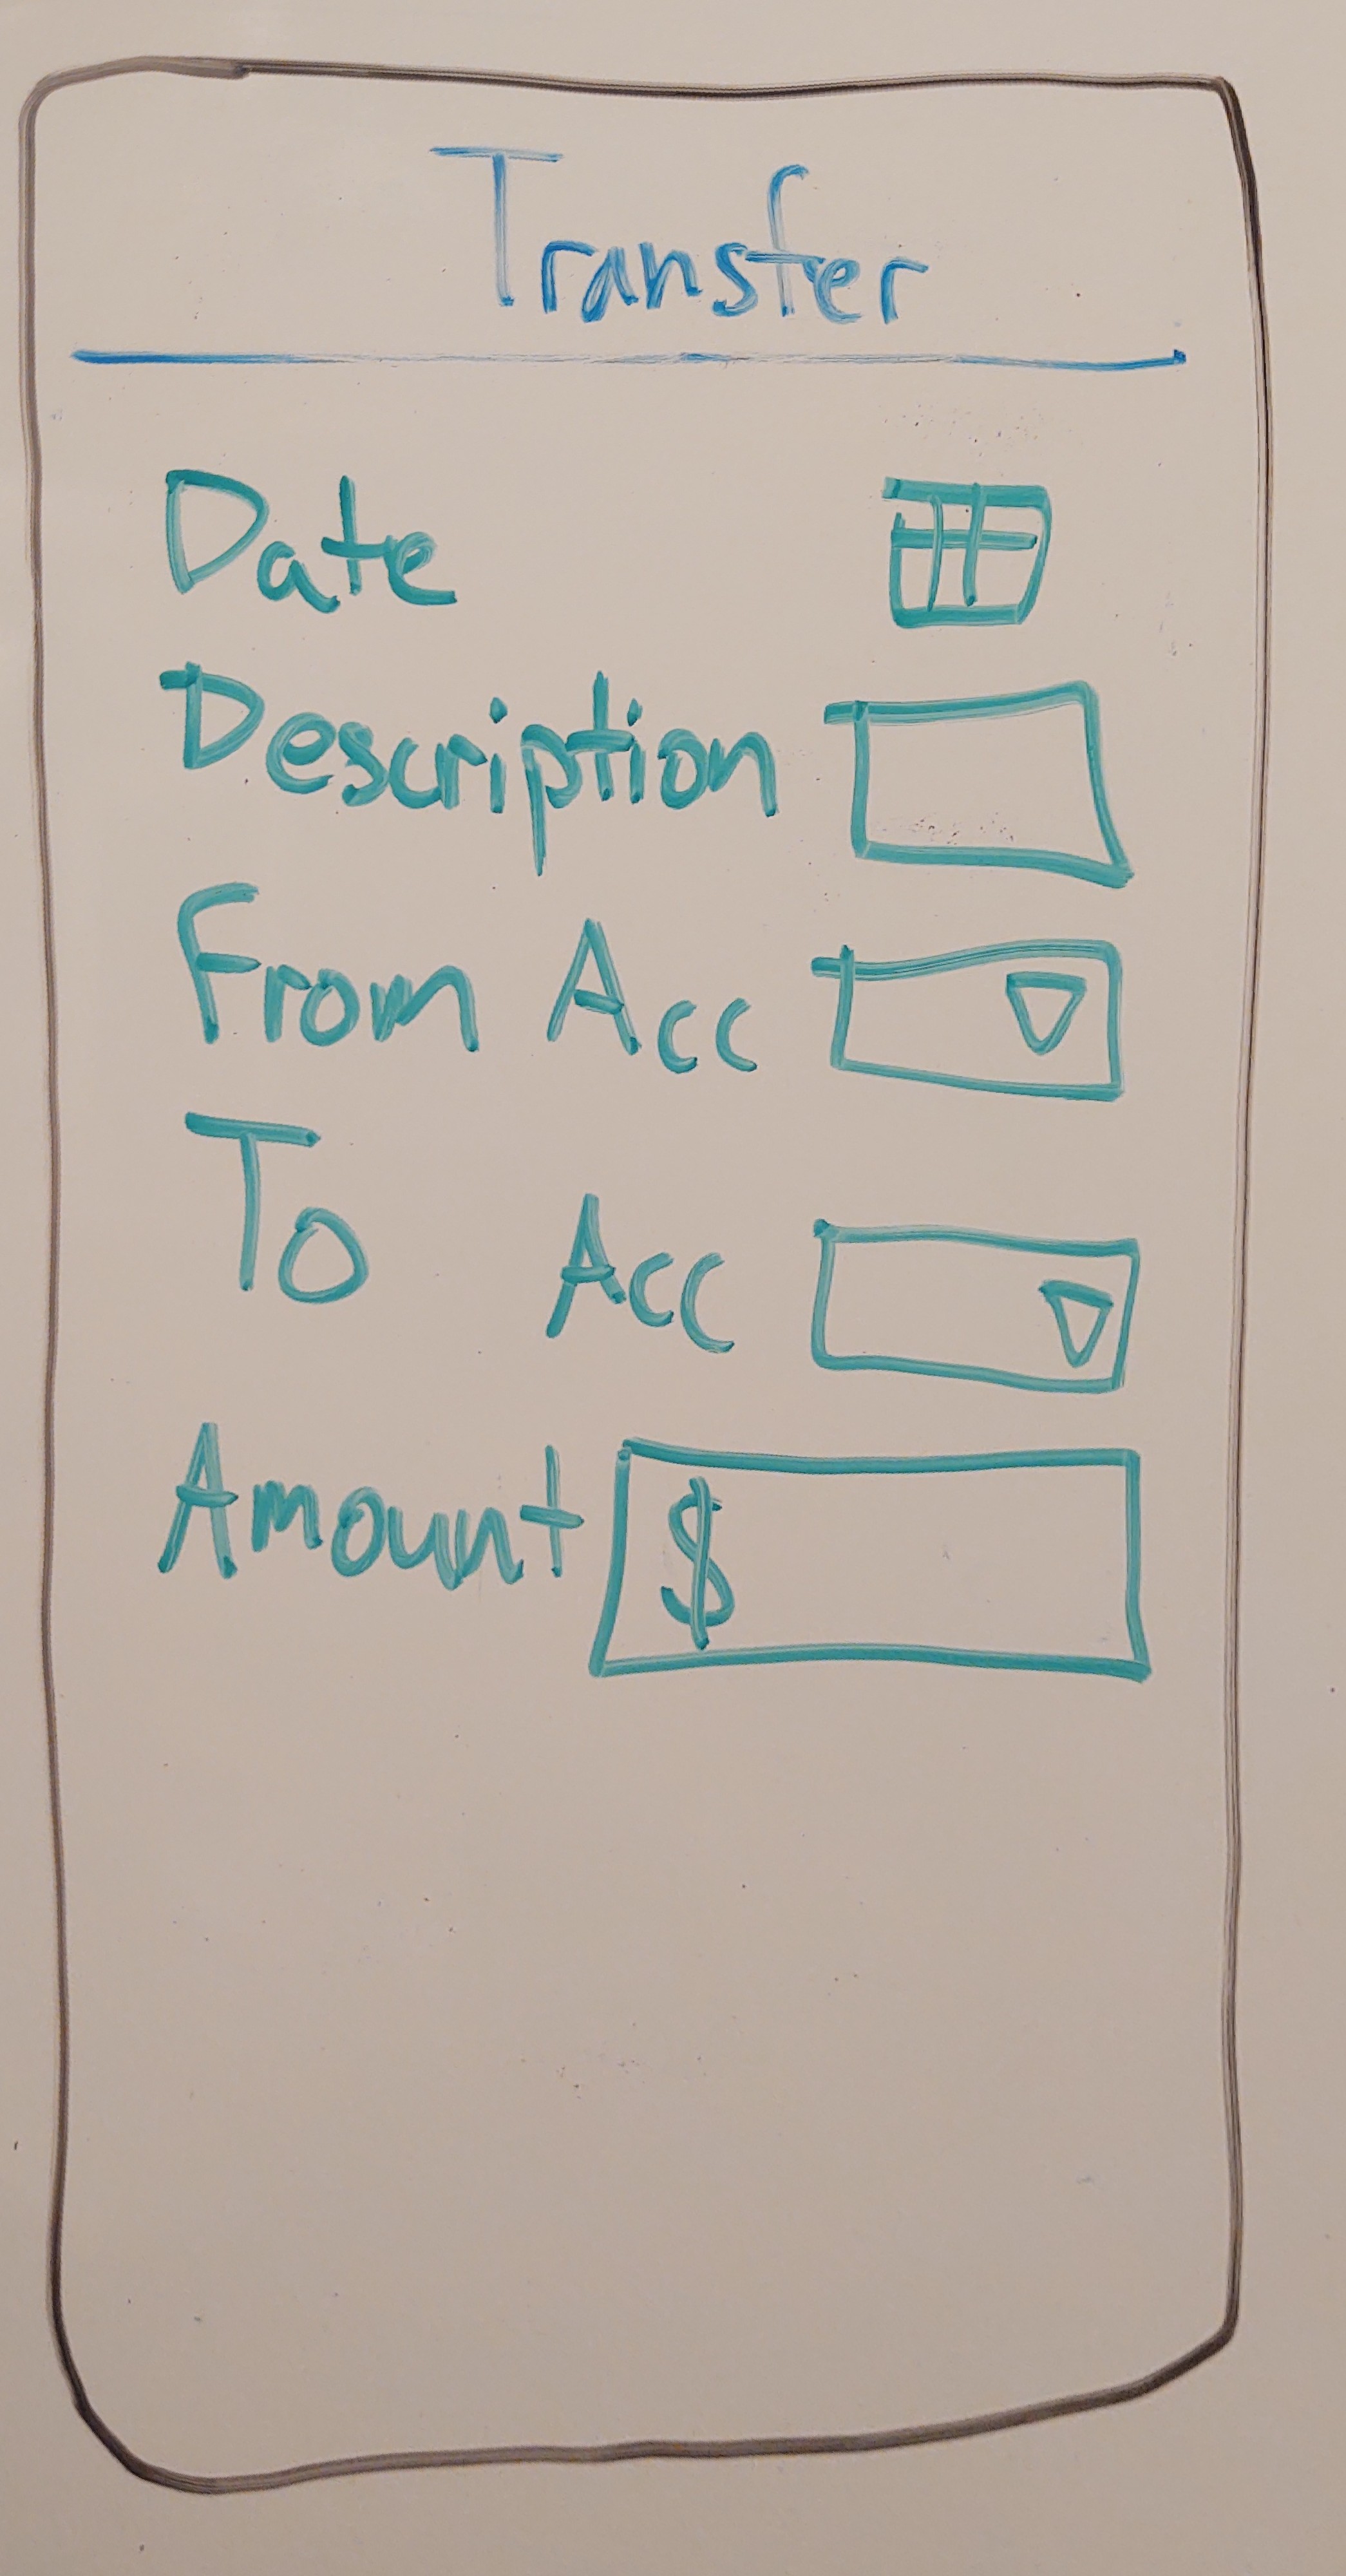 Transfer
Date
Description
From Acc
To Acc
Amount $